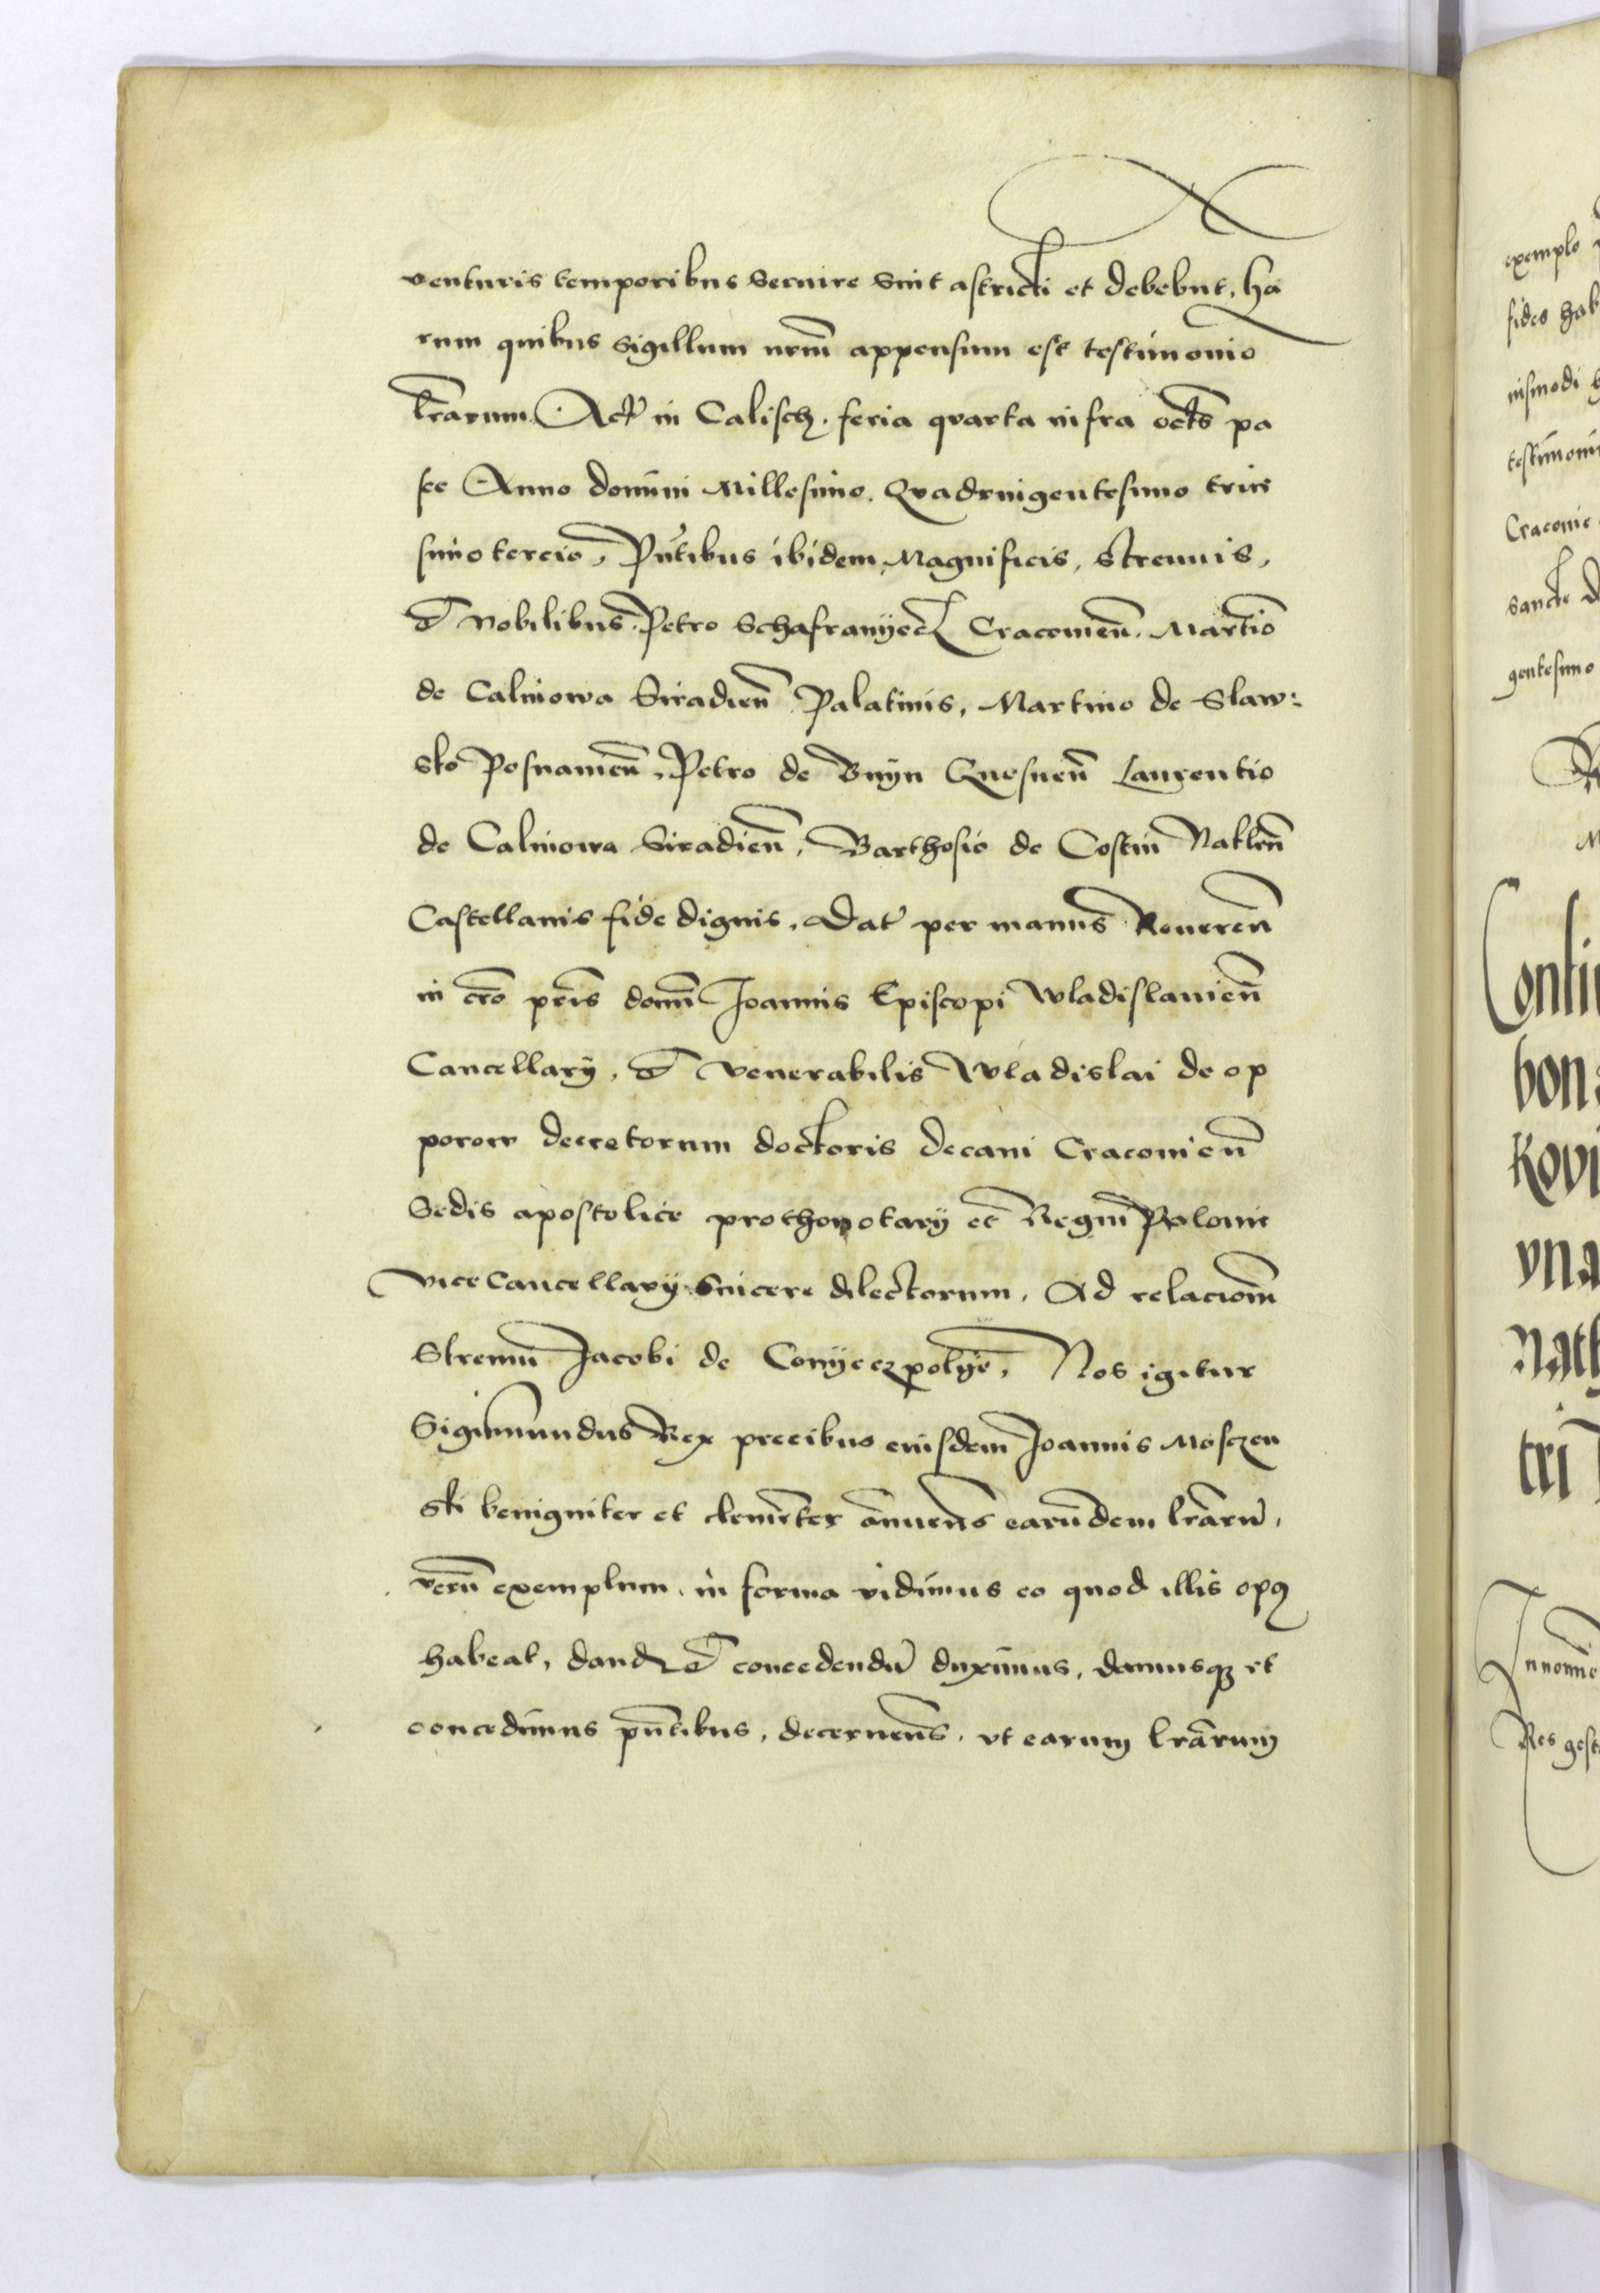 venturis temporibus seruire sint astricti et debebnt, ha
rum quibus sigillum nrm̄ appensum est testimonio
lrārum. Act̄ in Calisch. feria qvarta infra octs̄ pa
sce Anno domini Millesimo. Qvadringentesimo trice
simo tercio, Pn̄tibus ibidem, Magnificis, Strenuis,
et Nobilibus. Petro Schafranyecz Cracouien̄. Martīo
de Calinowa Siradien̄ Palatinis, Martino de Slaw:
sko Posnanien̄, Petro de Bnyn Gnesnen̄ Laurentio
de Calinowa Siradien̄, Barthosio de Costin Naklen̄
Castellanis fide dignis. Dat̄ per manus Reueren̄
in crō pr̄is domī Joannis Episcopi Wladislauien̄
Cancellarÿ, et venerabilis Wladislai de op
porow decretorum doctoris decani Cracouien̄
Sedis apostolice prothonotarÿ et Regni Polonie
vice Cancellarÿ sincere dilectorum. Ad relaciom̄
Strenui Jacobi de Conyeczpolÿe, Nos igitur
Sigismundus Rex precibus eiusdem Joannis Mosczen
ski benigniter et clemēter ānuen̄s earūdem lrārū,
verū exemplum in forma vidimus eo quod illis opꝯ
habeat, dand et concedendū duximus, damusqꝫ et
concedimus pn̄tibus, decernen̄s, vt earum lrārum
exemplo
fides hab
uismodi
testimoni
Cracouie
sancte
gentesimo
Conti
bon
Kovi
vna
Nath
tri
Innomīe
Res gest